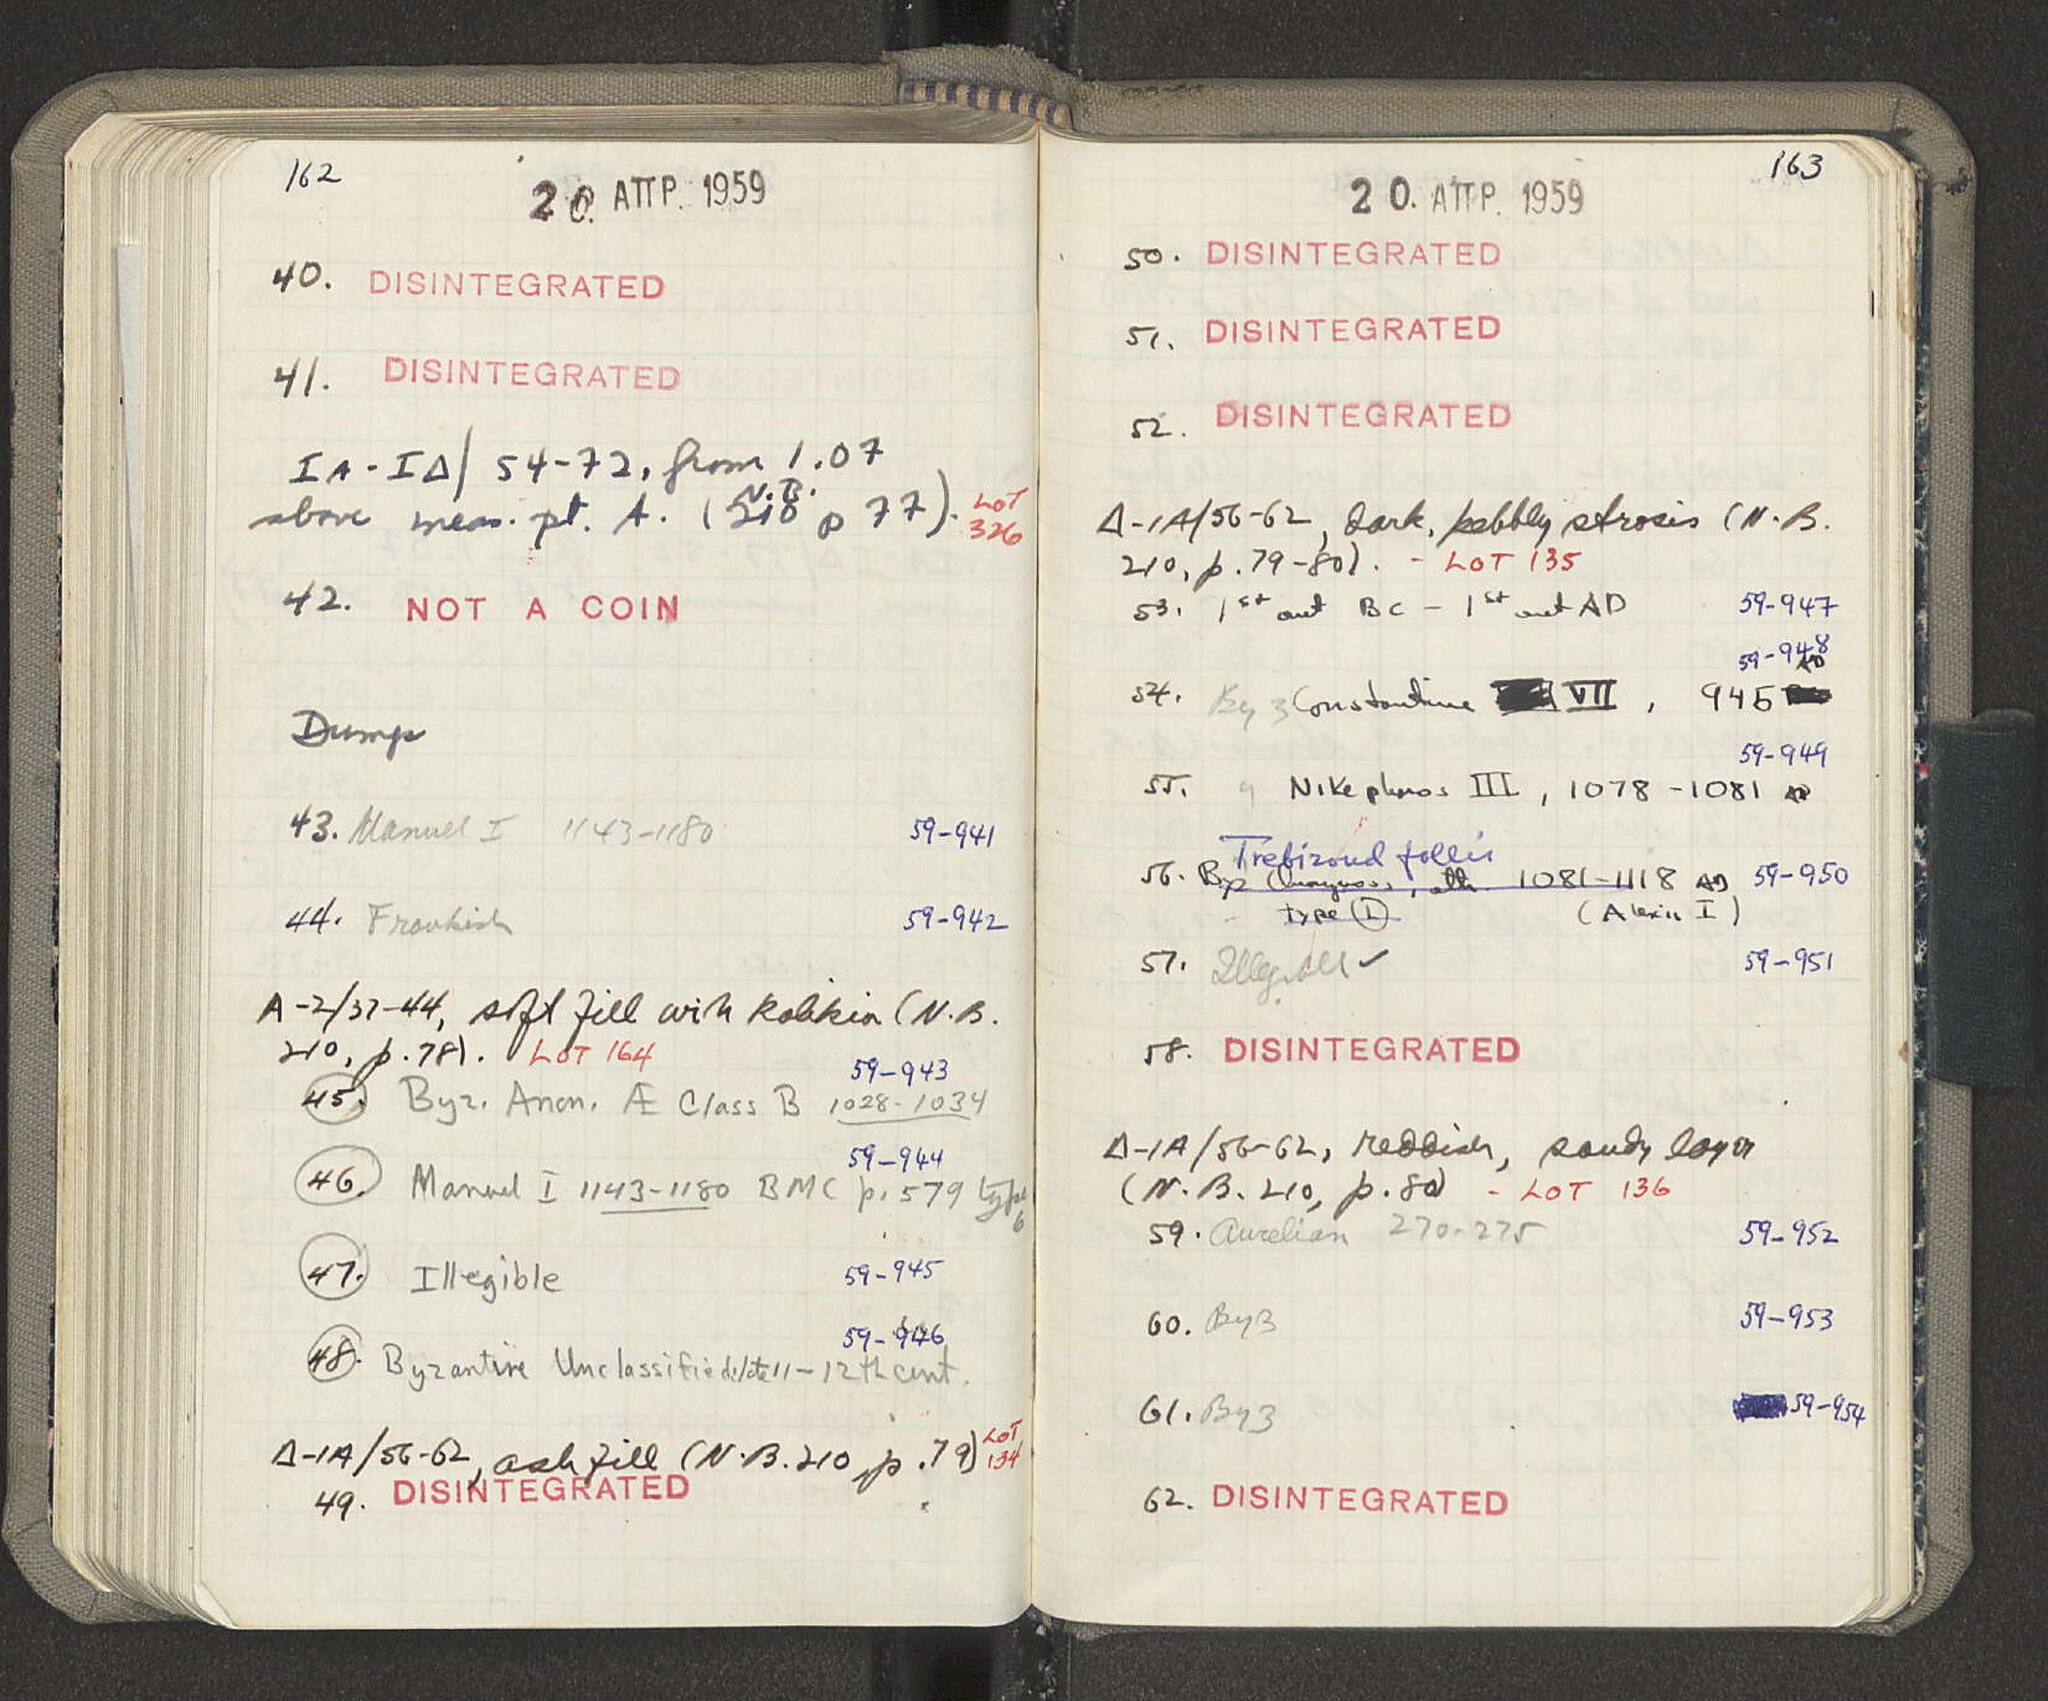 162
20. ΑΠΡ. 1959
40. DISINTEGRATED
41. DISINTEGRATED
IA-IΔ/54-72, from 1.07
above meas. pt. A. (N.B. 210 p 77). LOT 326
42. NOT A COIN
Dump
43. Manuel I 1143-1180 59-941
44. Frankish 59-942
A-2/37-44, soft fill with kalikia (N.B.
210, p.78). LOT 164
59-943
45. Byz. Anon. Æ Class B 1028-1034
59-944
46. Manuel I 1143-1180 BMC p. 579 type 6
47. Illegible 59-945
59-946
48. Byzantine Unclassified late 11-12th cent.
Δ-1A/56-62, ash fill (N.B. 210, p. 79) LOT 134
49. DISINTEGRATED
163
20. ΑΠΡ. 1959
50. DISINTEGRATED
51. DISINTEGRATED
52. DISINTEGRATED
Δ-1A/56-62, dark, pebbly strosis (N.B.
210, p.79-80). - LOT 135
53. 1st cent BC - 1st cent AD 59-947
59-948
54. Byz Constantine VII, 945 AD
59-949
55. " Nikephoros III, 1078-1081 AD
Trebizond follis
56. Byz Anonymous, attr. 1081-1118 AD 59-950
type (I) (Alexius I)
57. Illegible ✓ 59-951
58. DISINTEGRATED
Δ-1A/56-62, reddish, sandy layer
(N.B. 210, p. 80) - LOT 136
59. Aurelian 270-275 59-952
60. Byz 59-953
61. Byz 59-954
62. DISINTEGRATED